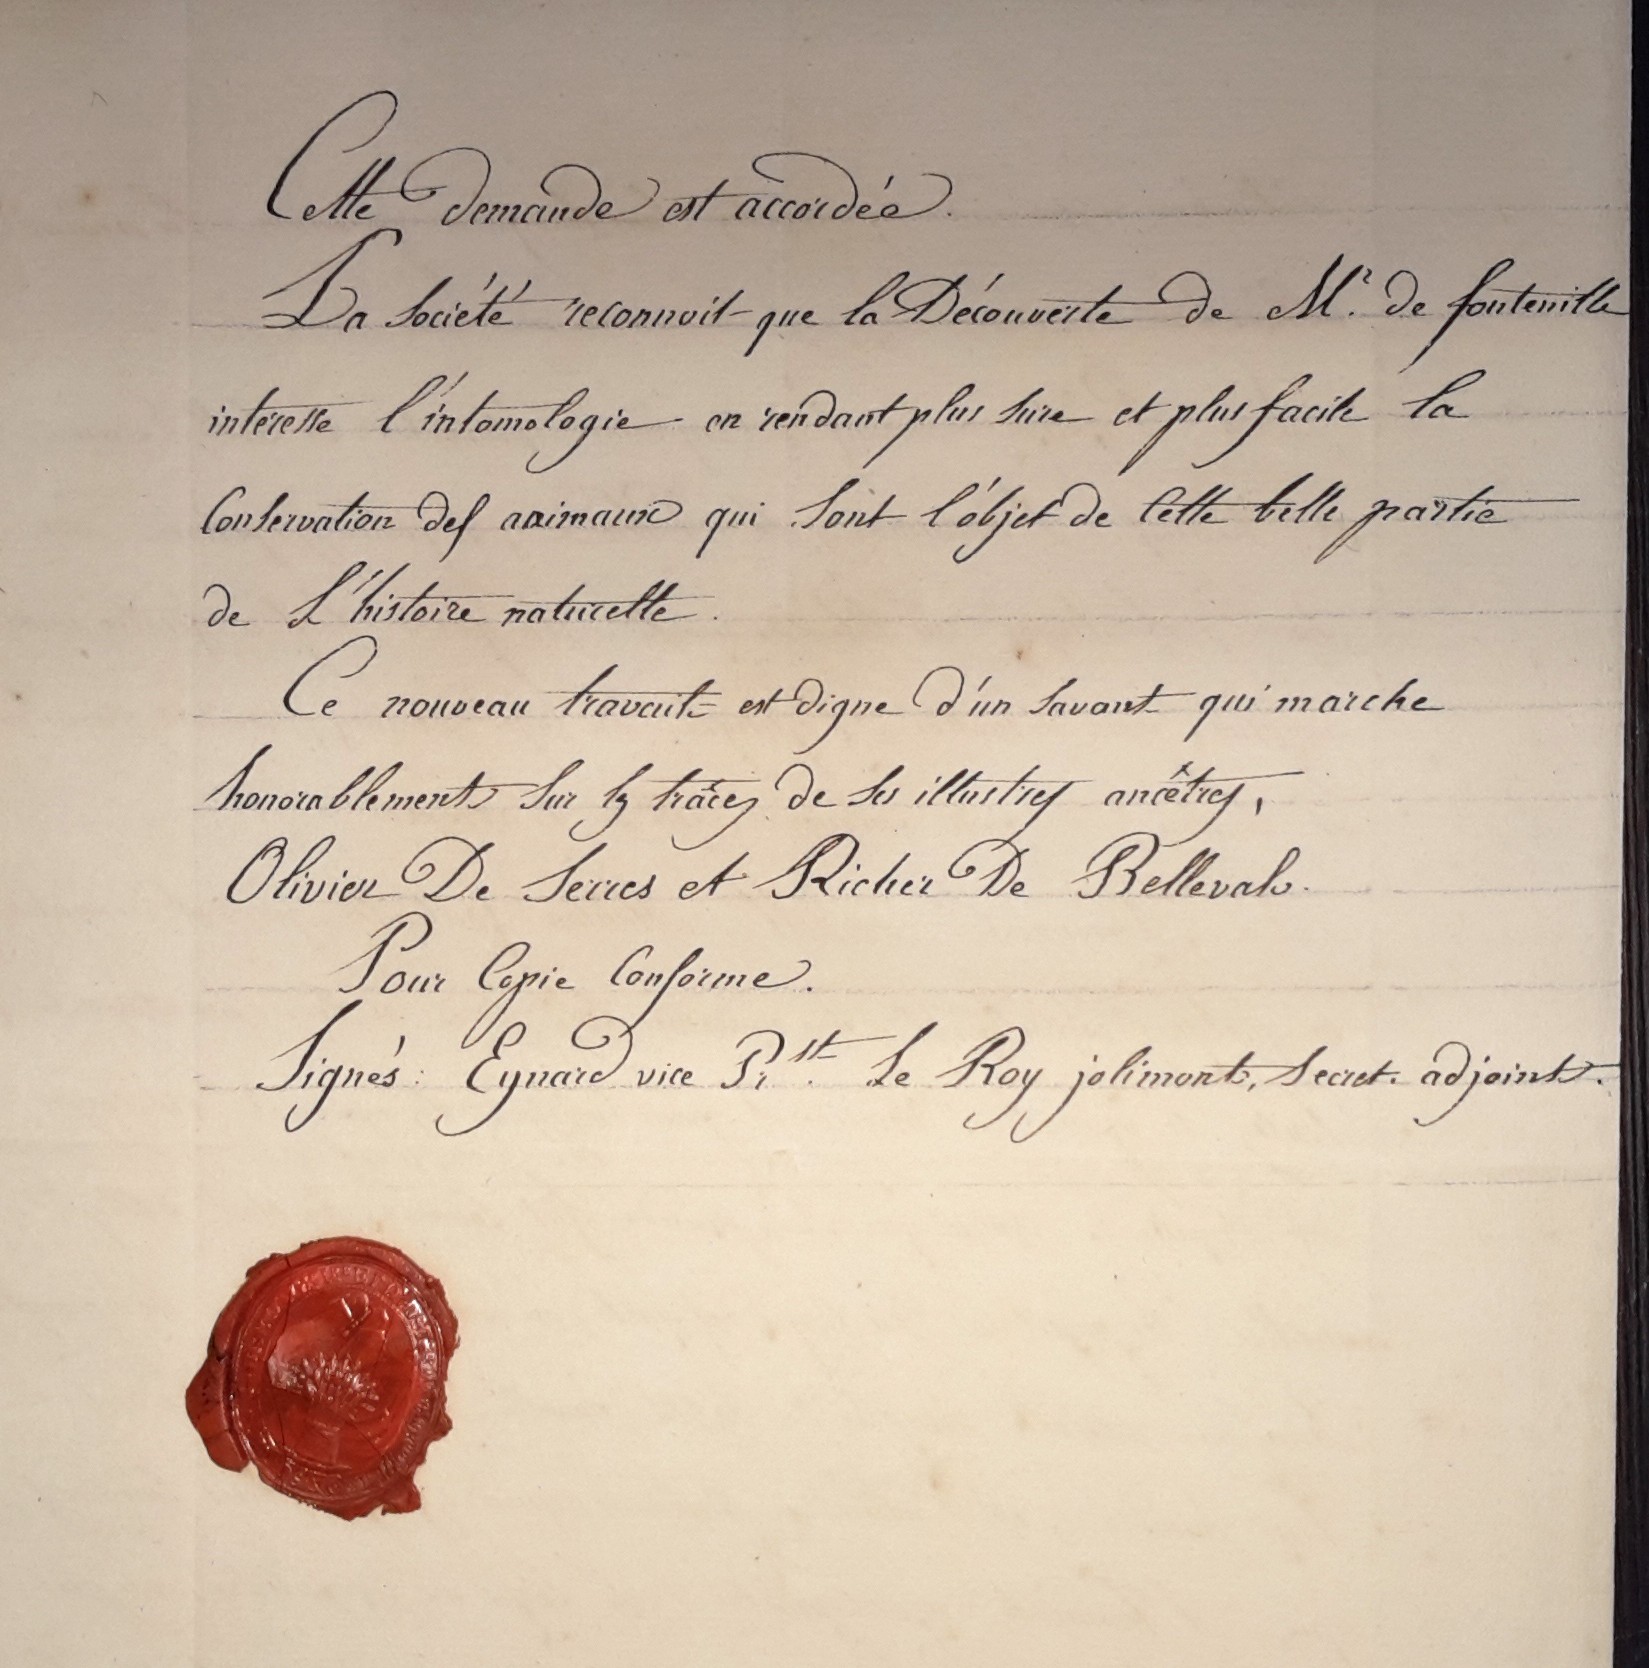 Cette demande est accordée.
La Société reconnoit que la Découverte de Mr. de fontenille
intéresse l'intomologie en rendant plus sure et plus facile la
Conservation des animaux qui sont l'objet de Cette belle partie
de L'histoire naturelle.
Ce nouveau travail est digne d'un Savant qui marche
honorablement sur les traces de ses illustres ancêtres,
Olivier De Serres et Richer De Belleval.
Pour Copie Conforme.
Signés: Eynard vice Prst. Le Roy jolimont, Secret. adjoint.